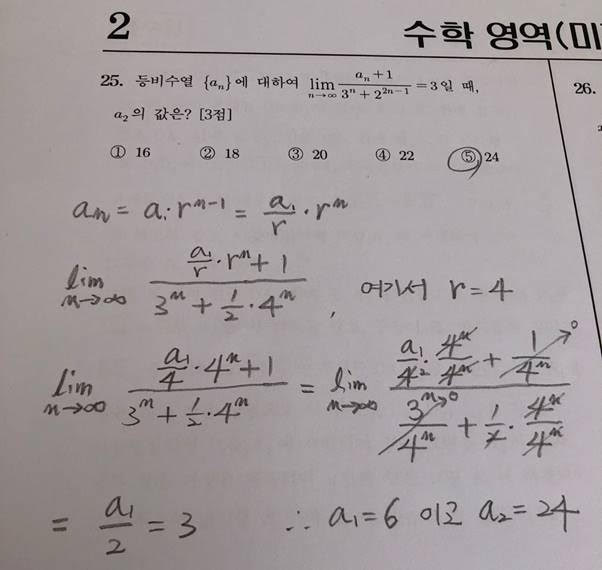 2
수학 영역(미
25. 등비수열 {aₙ}에 대하여 lim_{n→∞} (aₙ+1)/(3ⁿ+2²ⁿ⁻¹) = 3일 때,
a₂의 값은? [3점]
① 16 ② 18 ③ 20 ④ 22 ⑤ 24
26.
aₙ = a₁·rⁿ⁻¹ = a₁/r · rⁿ
lim_{n→∞} (a₁/r · rⁿ + 1)/(3ⁿ + 1/2 · 4ⁿ), 여기서 r = 4
lim_{n→∞} (a₁/4 · 4ⁿ + 1)/(3ⁿ + 1/2 · 4ⁿ) = lim_{n→∞} (a₁/4₂ · 4ⁿ/4ⁿ + 1/4ⁿ→0)/(3ⁿ/4ⁿ→0 + 1/2 · 4ⁿ/4ⁿ)
= a₁/2 = 3 ∴ a₁ = 6 이고 a₂ = 24